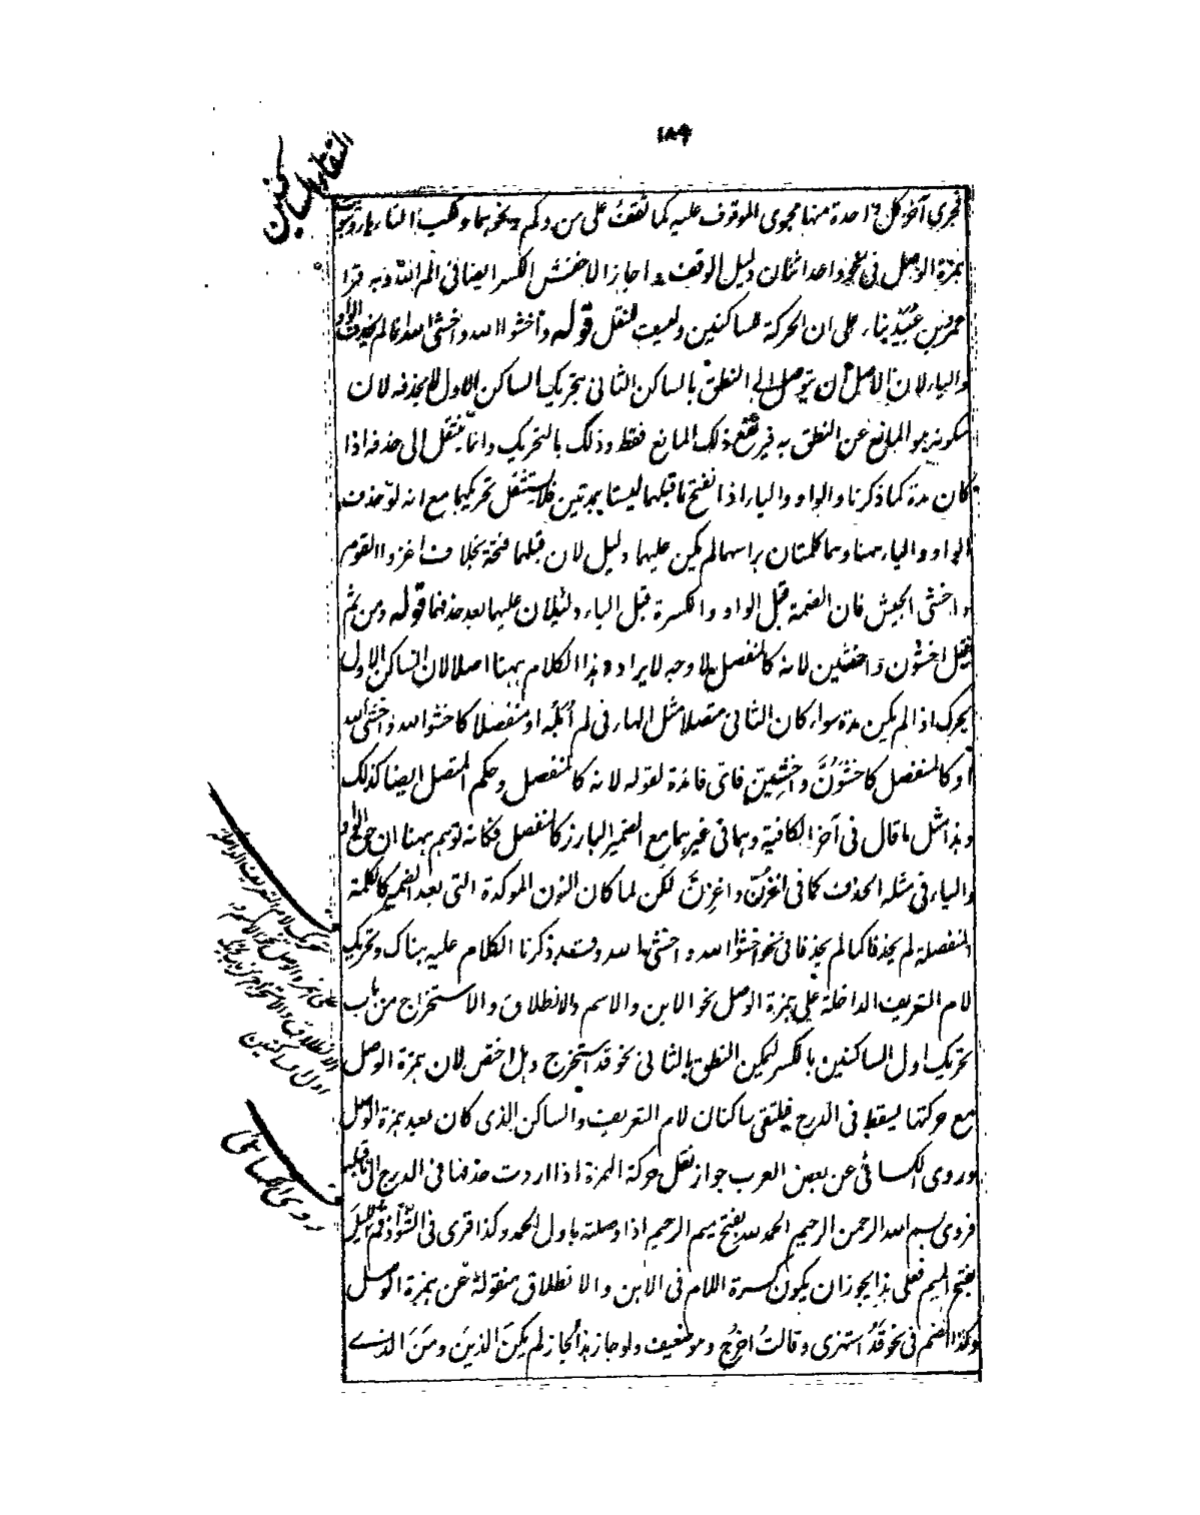 ١٨٩
التقاء الساكنين
فجرى آخر كل واحدة منها مجرى الموقوف عليه كما تقف على من وكم ونحوهما وقلب التاء هاء وثبوت
همزة الوصل في نحو واحد اثنان دليل الوقف واجاز الاخفش الكسر ايضا في الم الله وبه قرا
عمرو بن عبيد بناء على ان الحركة للساكنين وليست للنقل قوله واخشوا الله واخشى الله انما لم يحذف الواو
والياء لان الاصل ان يتوصل الى النطق بالساكن الثاني بتحريك الساكن الاول لا بحذفه لان
سكونه هو المانع عن النطق به فيرتفع ذلك المانع فقط وذلك بالتحريك وانما ينتقل الى حذفه اذا
كان مدة كما ذكرنا والواو والياء اذا انفتح ما قبلهما ليستا بمدتين فلا يستثقل تحريكهما مع انه لو حذفت
الواو والياء ههنا وهما كلمتان براسهما لم يكن عليهما دليل لان قبلهما فتحة بخلاف اغزوا القوم
واخشى الجيش فان الضمة قبل الواو والكسرة قبل الياء دليلان عليهما بعد حذفهما قوله ومن ثم
قيل اخشون واخشين لانه كالمنفصل لا وجه لايراد هذا الكلام ههنا اصلا لان الساكن الاول
يحرك اذا لم يكن مدة سواء كان الثاني متصلا مثل الهاء في لم ابله او منفصلا كاخشوا الله واخشى الله
او كالمنفصل كاخشونّ واخشينّ فاي فائدة لقوله لانه كالمنفصل وحكم المتصل ايضا كذلك
وهذا مثل ما قال في آخر الكافية وهما في غيرهما مع الضمير البارز كالمنفصل فكانه توهم ههنا ان حق الواو
والياء في مثله الحذف كما في اغزنّ واغزنّ لكن لما كان النون المؤكدة التي بعد الضمير كالكلمة
المنفصلة لم يحذفا كما لم يحذفا في نحو اخشوا الله واخشى الله وستعيد ذكرنا الكلام عليه هناك وتحريك
لام التعريف الداخلة على همزة الوصل نحو الابن والاسم والانطلاق والاستخراج من باب
تحريك اول الساكنين بالكسر ليمكن النطق بالثاني نحو قد استخرج وهل احتقر لان همزة الوصل
مع حركتها يسقط في الدرج فيلتقي ساكنان لام التعريف والساكن الذي كان بعد همزة الوصل
وروى الكسائي عن بعض العرب جواز نقل حركة الهمزة اذا اردت حذفها في الدرج الى ما قبلها
فروى بسم الله الرحمن الرحيم الحمد لله بفتح ميم الرحيم اذا وصلته باول الحمد وكذا قرى في الشواذ قم الليل
بفتح الميم فعلى هذا يجوز ان يكون كسرة اللام في الابن والانطلاق منقولة عن همزة الوصل
وكذا الضم في نحو قد استهزى وقالت اخرج وهو ضعيف ولو جاز هذا لجاز لم يكن الذين ومن الذي
تحريك لام التعريف الداخلة
على همزة الوصل نحو الابن والاسم و
الانطلاق والاستخراج من باب تحريك
اول ساكنين
روى الكسائي